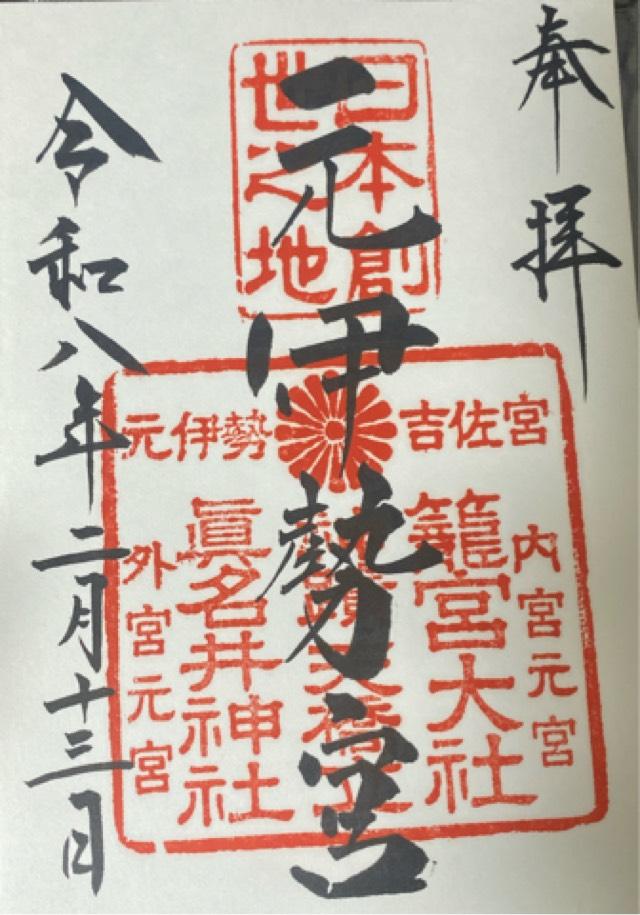 奉拝
日本創
世之地
元伊勢宮
元伊勢 吉佐宮
内宮元宮
籠宮大社
天橋立
眞名井神社
外宮元宮
令和八年二月十三日